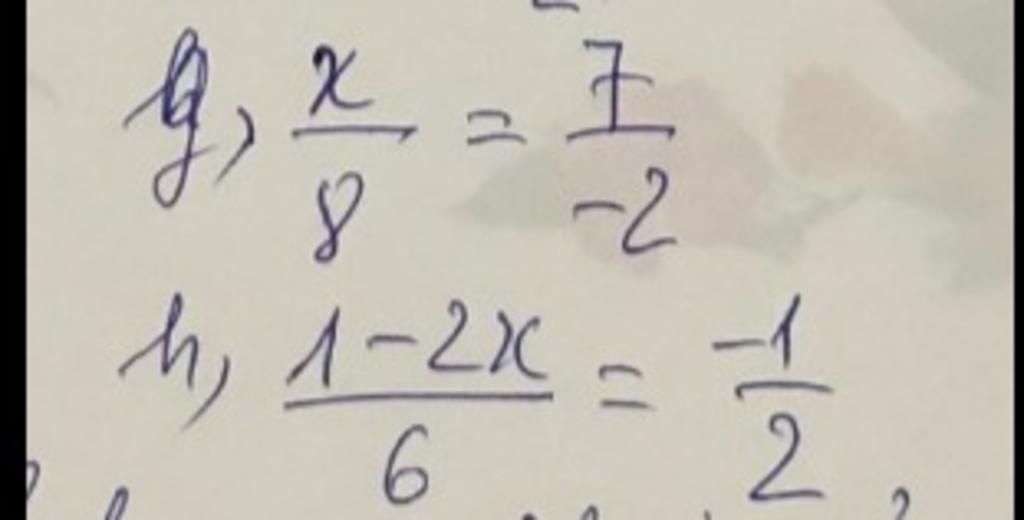 g, x/8 = 7/-2
h, 1-2x/6 = -1/2